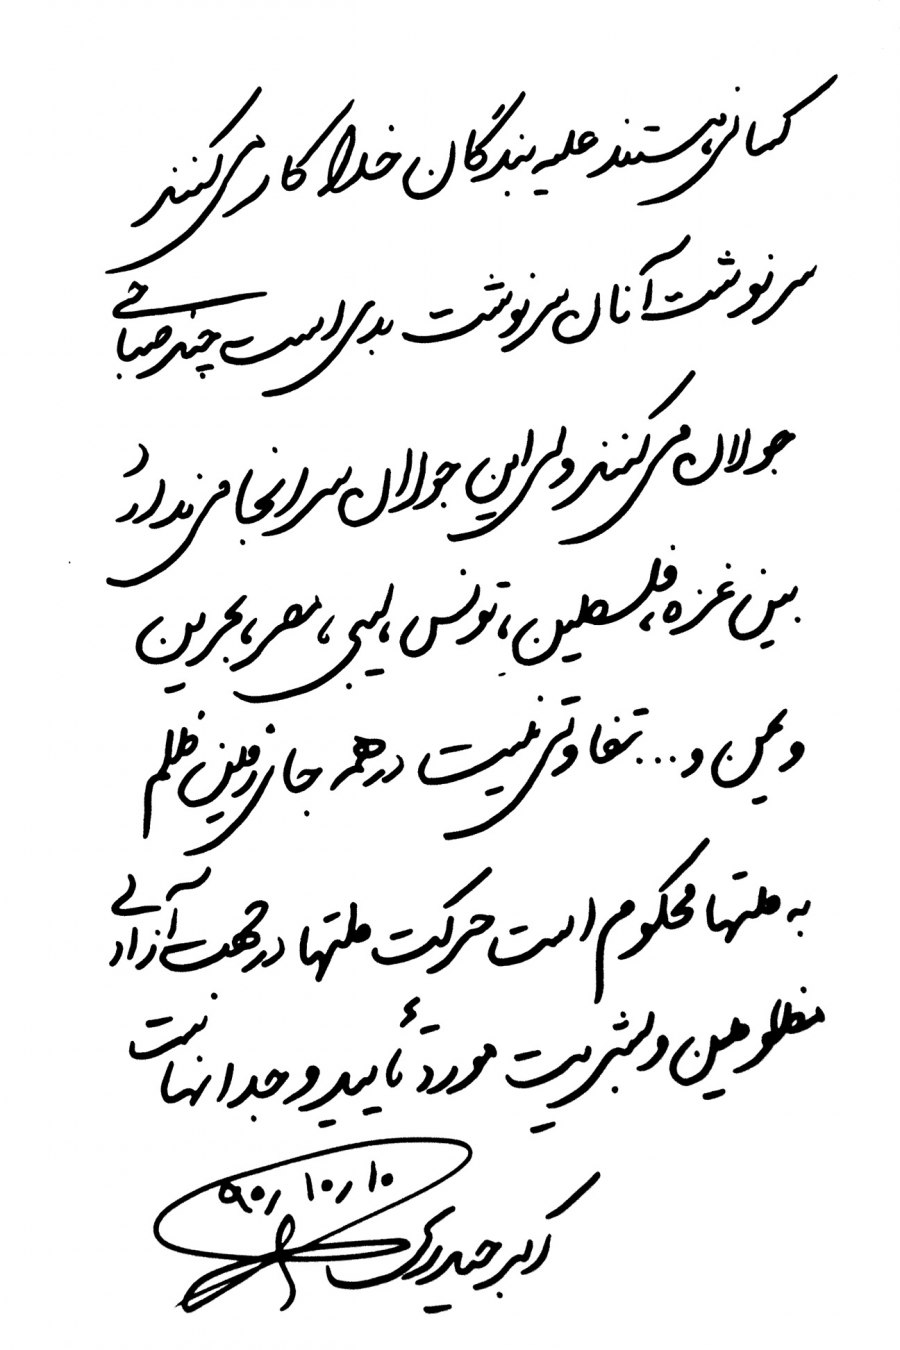 کسانی هستند علیه بندگان خدا کار می کنند
سرنوشت آنان سرنوشت بدی است چند صباحی
جولان می کنند ولی این جولان سرانجامی ندارد
بین غزه، فلسطین، تونس، لیبی، مصر، بحرین
و یمن و... تفاوتی نیست در همه جای زمین ظلم
به ملتها محکوم است حرکت ملتها در جهت آزادی
مظلومین و بشریت مورد تأیید وجدانهاست
۹۰/۱۰/۱۰
اکبر حیدری